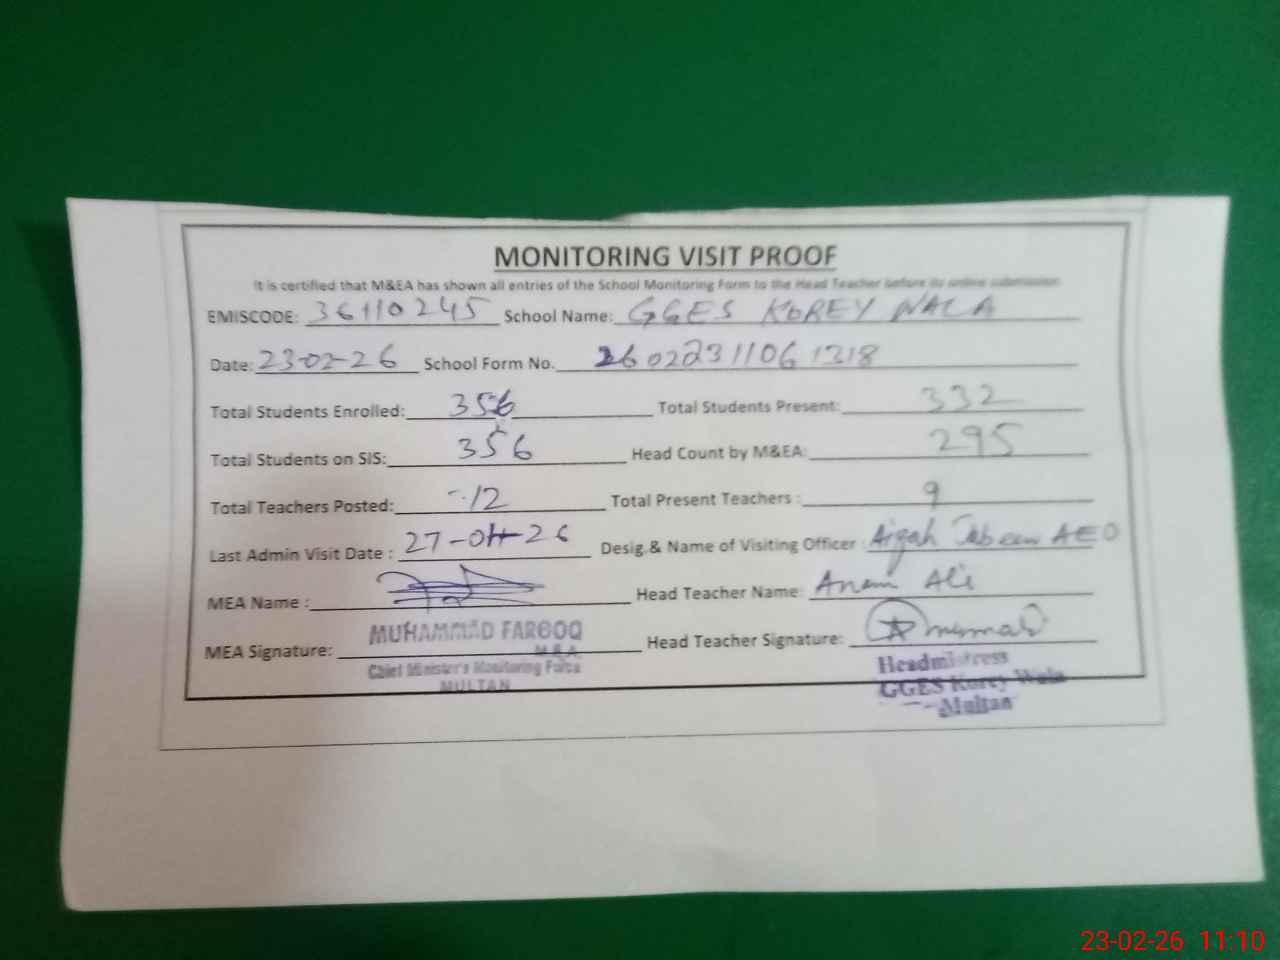 MONITORING VISIT PROOF
It is certified that M&EA has shown all entries of the School Monitoring Form to the Head Teacher before its online submission
EMISCODE: 36110245 School Name: GGES KOREY WALA
Date: 23-02-26 School Form No. 26022311061318
Total Students Enrolled: 356 Total Students Present: 332
Total Students on SIS: 356 Head Count by M&EA: 295
Total Teachers Posted: 12 Total Present Teachers : 9
Last Admin Visit Date : 27-01-26 Desig.& Name of Visiting Officer : Aiqah Jabeen AEO
MEA Name : Head Teacher Name: Anam Ali
MEA Signature: Head Teacher Signature:
MUHAMMAD FAROOQ
M.E.A
Chief Minister's Monitoring Force
MULTAN
Headmistress
GGES Korey Wala
Multan
23-02-26 11:10